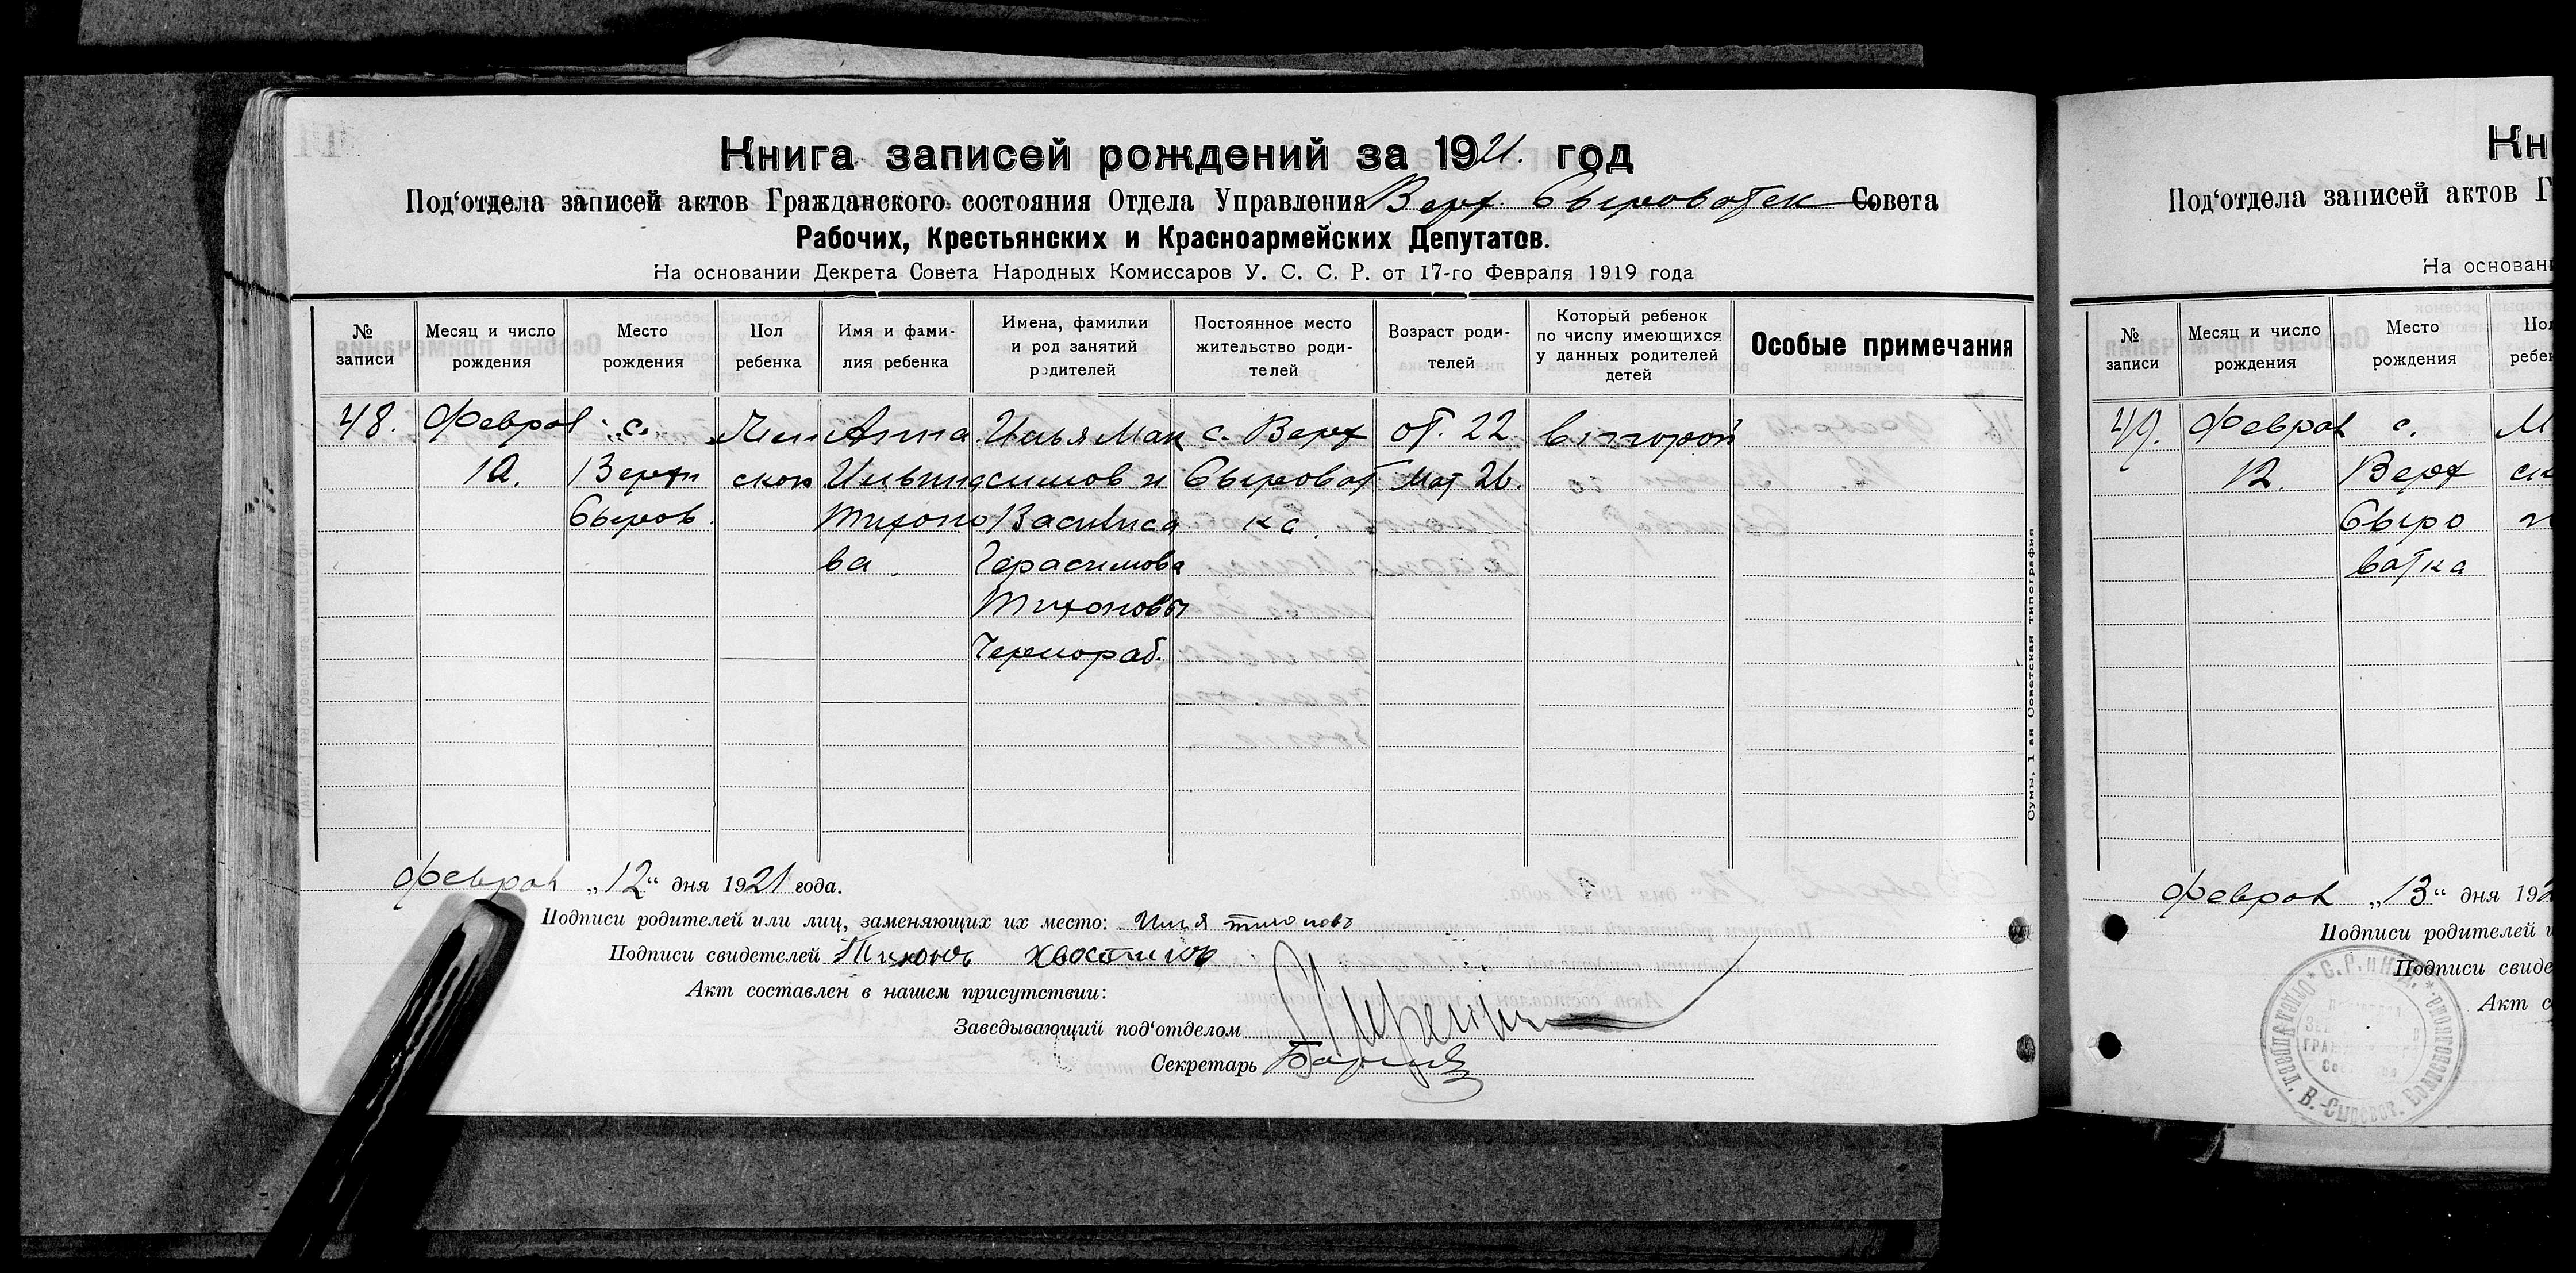 Книга записей рождений за 1921. год
Под'отдела записей актов Гражданского состояния Отдела Управления Верх. Сыроватск Совета
Рабочих, Крестьянских и Красноармейских Депутатов.
На основании Декрета Совета Народных Комиссаров У. С. С. Р. от 17-го Февраля 1919 года
№ записи
Месяц и число рождения
Место рождения
Пол ребенка
Имя и фами-
лия ребенка
Имена, фамилии
и род занятий
родителей
Постоянное место
жительство роди-
телей
Возраст роди-
телей
Который ребенок
по числу имеющихся
у данных родителей
детей
Особые примечания
48.
Феврал
12.
"с."
Верхн
Сыров.
Жен
ской
Анна
Ильина
Тихоно
ва.
Илья Мак
симов и
Василиса
Герасимова
Тихоновы
Чернораб.
с. Верх
Сыроват
ка.
от. 22
мат 26.
второй
Сумы, 1 ая Советская типография
Феврал „12“ дня 1921 года.
Подписи родителей или лиц, заменяющих их место: Илья тихоновъ
Подписи свидетелей Тихонъ
Акт составлен в нашем присутствии:
Заведывающий под'отделом
Секретарь
Кн
Под'отдела записей актов Г
На основан
№ записи
Месяц и число рождения
Место рождения
Пол
ребен
49.
Феврал
12.
с.
Верх
Сыро
ватка
М
ск
Феврал „13“ дня 192
Подписи родителей и
Подписи свиде
Акт с